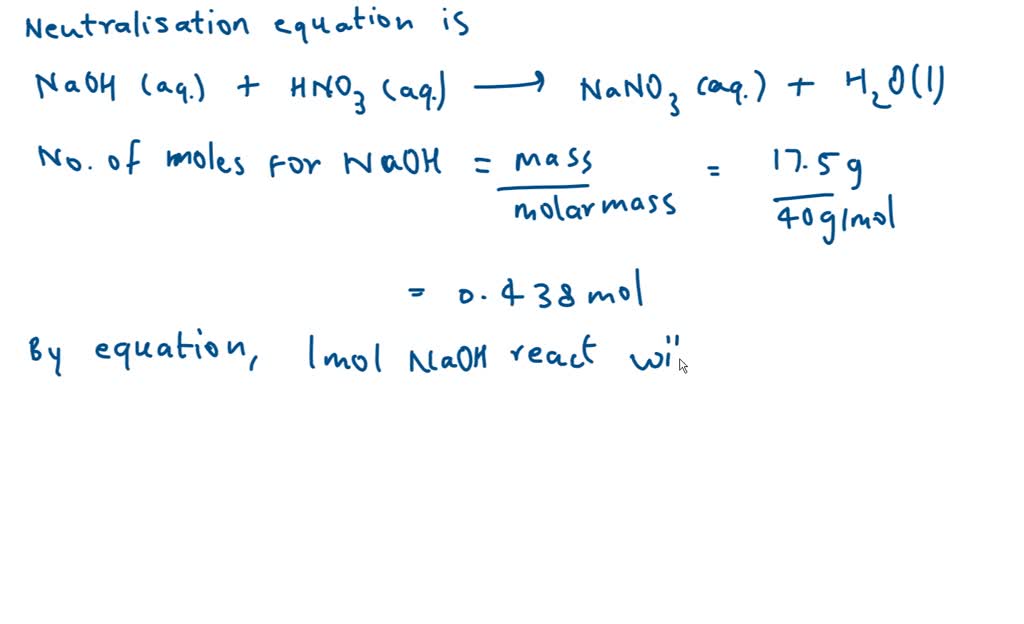 Neutralisation equation is
NaOH (aq.) + HNO3 (aq.) ⟶ NaNO3 (aq.) + H2O(l)
No. of moles for NaOH = mass / molar mass = 17.5 g / 40 g/mol
= 0.438 mol
By equation, 1 mol NaOH react